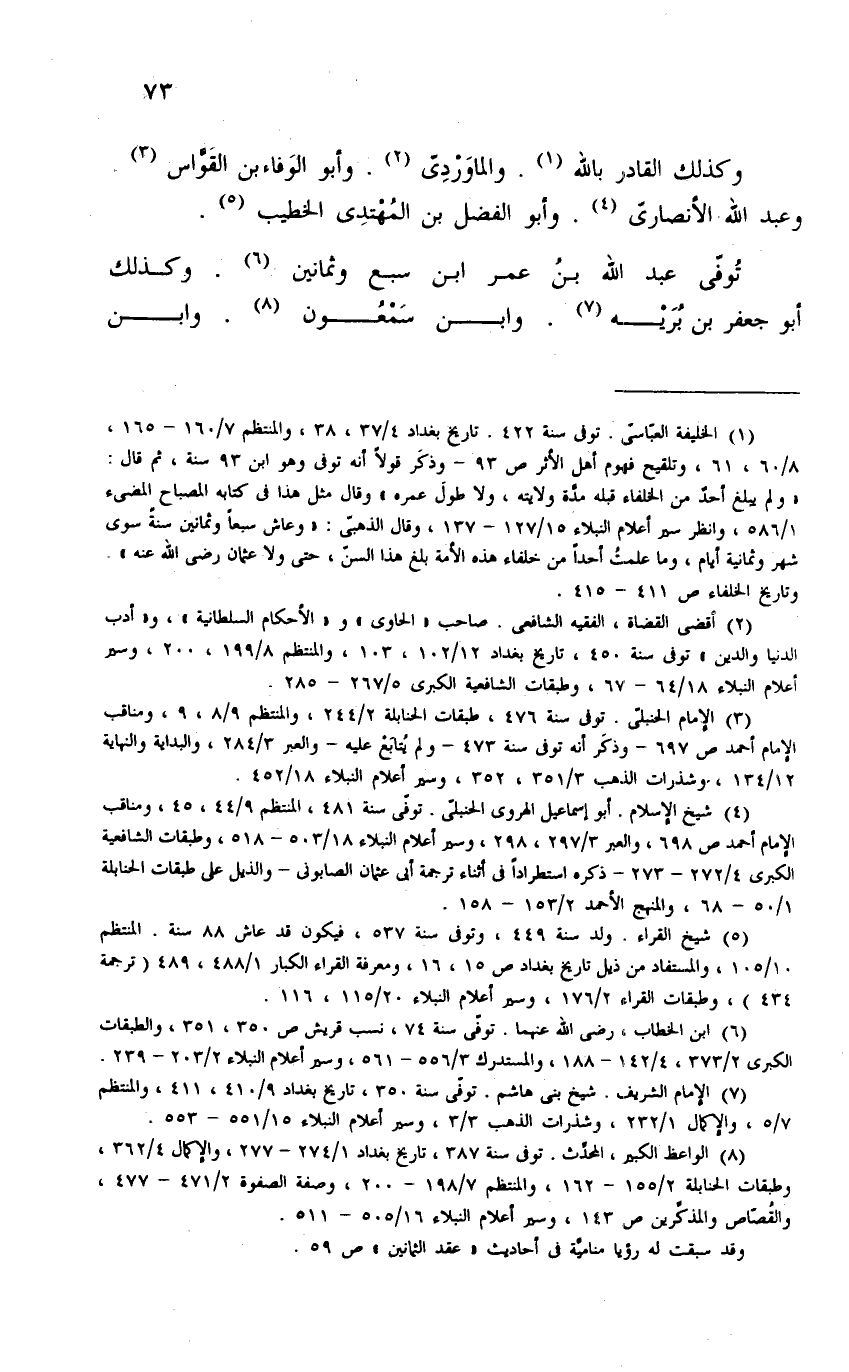 ٧٣
وكذلك القادر بالله (١) . والماوَرْدِىّ (٢) . وأبو الوَفاء بن القَوَّاس (٣) .
وعبد الله الأنصارىّ (٤) . وأبو الفضل بن المُهْتدِى الخطيب (٥) .
تُوفّى عبد الله بنُ عمر ابن سبع وثمانين (٦) . وكـذلك
أبو جعفر بن بُرَيْـــه (٧) . وابـــن سَمْعُـــون (٨) . وابـــن
(١) الخليفة العبّاسىّ . توفى سنة ٤٢٢ . تاريخ بغداد ٣٧/٤ ، ٣٨ ، والمنتظم ١٦٠/٧ – ١٦٥ ،
٦٠/٨ ، ٦١ ، وتلقيح فهوم أهل الأثر ص ٩٣ – وذكَر قولاً أنه توفى وهو ابن ٩٣ سنة ، ثم قال :
« ولم يبلغ أحدٌ من الخلفاء قبله مدّة ولايته ، ولا طولَ عمره » وقال مثل هذا فى كتابه المصباح المضىء
٥٨٦/١ ، وانظر سير أعلام النبلاء ١٢٧/١٥ – ١٣٧ ، وقال الذهبىّ : « وعاش سبعاً وثمانين سنةً سوى
شهر وثمانية أيام ، وما علمتُ أحداً من خلفاء هذه الأمة بلغ هذا السنّ ، حتى ولا عثمان رضى الله عنه » .
وتاريخ الخلفاء ص ٤١١ – ٤١٥ .
(٢) أقضى القضاة ، الفقيه الشافعى . صاحب « الحاوى » و « الأحكام السلطانية » ، و« أدب
الدنيا والدين » توفى سنة ٤٥٠ ، تاريخ بغداد ١٠٢/١٢ ، ١٠٣ ، والمنتظم ١٩٩/٨ ، ٢٠٠ ، وسير
أعلام النبلاء ٦٤/١٨ – ٦٧ ، وطبقات الشافعية الكبرى ٢٦٧/٥ – ٢٨٥ .
(٣) الإمام الحنبلىّ . توفى سنة ٤٧٦ ، طبقات الحنابلة ٢٤٤/٢ ، والمنتظم ٨/٩ ، ٩ ، ومناقب
الإمام أحمد ص ٦٩٧ – وذكَر أنه توفى سنة ٤٧٣ – ولم يُتابَعْ عليه – والعبر ٢٨٤/٣ ، والبداية والنهاية
١٣٤/١٢ ، وشذرات الذهب ٣٥١/٣ ، ٣٥٢ ، وسير أعلام النبلاء ٤٥٢/١٨ .
(٤) شيخ الإسلام . أبو إسماعيل الهروى الحنبلىّ . توفّى سنة ٤٨١ ، المنتظم ٤٤/٩ ، ٤٥ ، ومناقب
الإمام أحمد ص ٦٩٨ ، والعبر ٢٩٧/٣ ، ٢٩٨ ، وسير أعلام النبلاء ٥٠٣/١٨ – ٥١٨ ، وطبقات الشافعية
الكبرى ٢٧٢/٤ – ٢٧٣ – ذكره استطراداً فى أثناء ترجمة أبى عثمان الصابونى – والذيل على طبقات الحنابلة
٥٠/١ – ٦٨ ، والمنهج الأحمد ١٥٣/٢ – ١٥٨ .
(٥) شيخ القراء . ولد سنة ٤٤٩ ، وتوفى سنة ٥٣٧ ، فيكون قد عاش ٨٨ سنة . المنتظم
١٠٥/١٠ ، والمستفاد من ذيل تاريخ بغداد ص ١٥ ، ١٦ ، ومعرفة القراء الكبار ٤٨٨/١ ، ٤٨٩ ( ترجمة
٤٣٤ ) ، وطبقات القراء ١٧٦/٢ ، وسير أعلام النبلاء ١١٥/٢٠ ، ١١٦ .
(٦) ابن الخطاب ، رضى الله عنهما . توفّى سنة ٧٤ ، نسب قريش ص ٣٥٠ ، ٣٥١ ، والطبقات
الكبرى ٣٧٣/٢ ، ١٤٢/٤ – ١٨٨ ، والمستدرك ٥٥٦/٣ – ٥٦١ ، وسير أعلام النبلاء ٢٠٣/٢ – ٢٣٩ .
(٧) الإمام الشريف . شيخ بنى هاشم . توفّى سنة ٣٥٠ ، تاريخ بغداد ٤١٠/٩ ، ٤١١ ، والمنتظم
٥/٧ ، والإكمال ٢٣٢/١ ، وشذرات الذهب ٣/٣ ، وسير أعلام النبلاء ٥٥١/١٥ – ٥٥٣ .
(٨) الواعظ الكبير ، المحدّث . توفى سنة ٣٨٧ ، تاريخ بغداد ٢٧٤/١ – ٢٧٧ ، والإكمال ٣٦٢/٤ ،
وطبقات الحنابلة ١٥٥/٢ – ١٦٢ ، والمنتظم ١٩٨/٧ – ٢٠٠ ، وصفة الصفوة ٤٧١/٢ – ٤٧٧ ،
والقُصّاص والمذكّرين ص ١٤٣ ، وسير أعلام النبلاء ٥٠٥/١٦ – ٥١١ .
وقد سبقت له رؤيا مناميّة فى أحاديث « عقد الثمانين » ص ٥٩ .